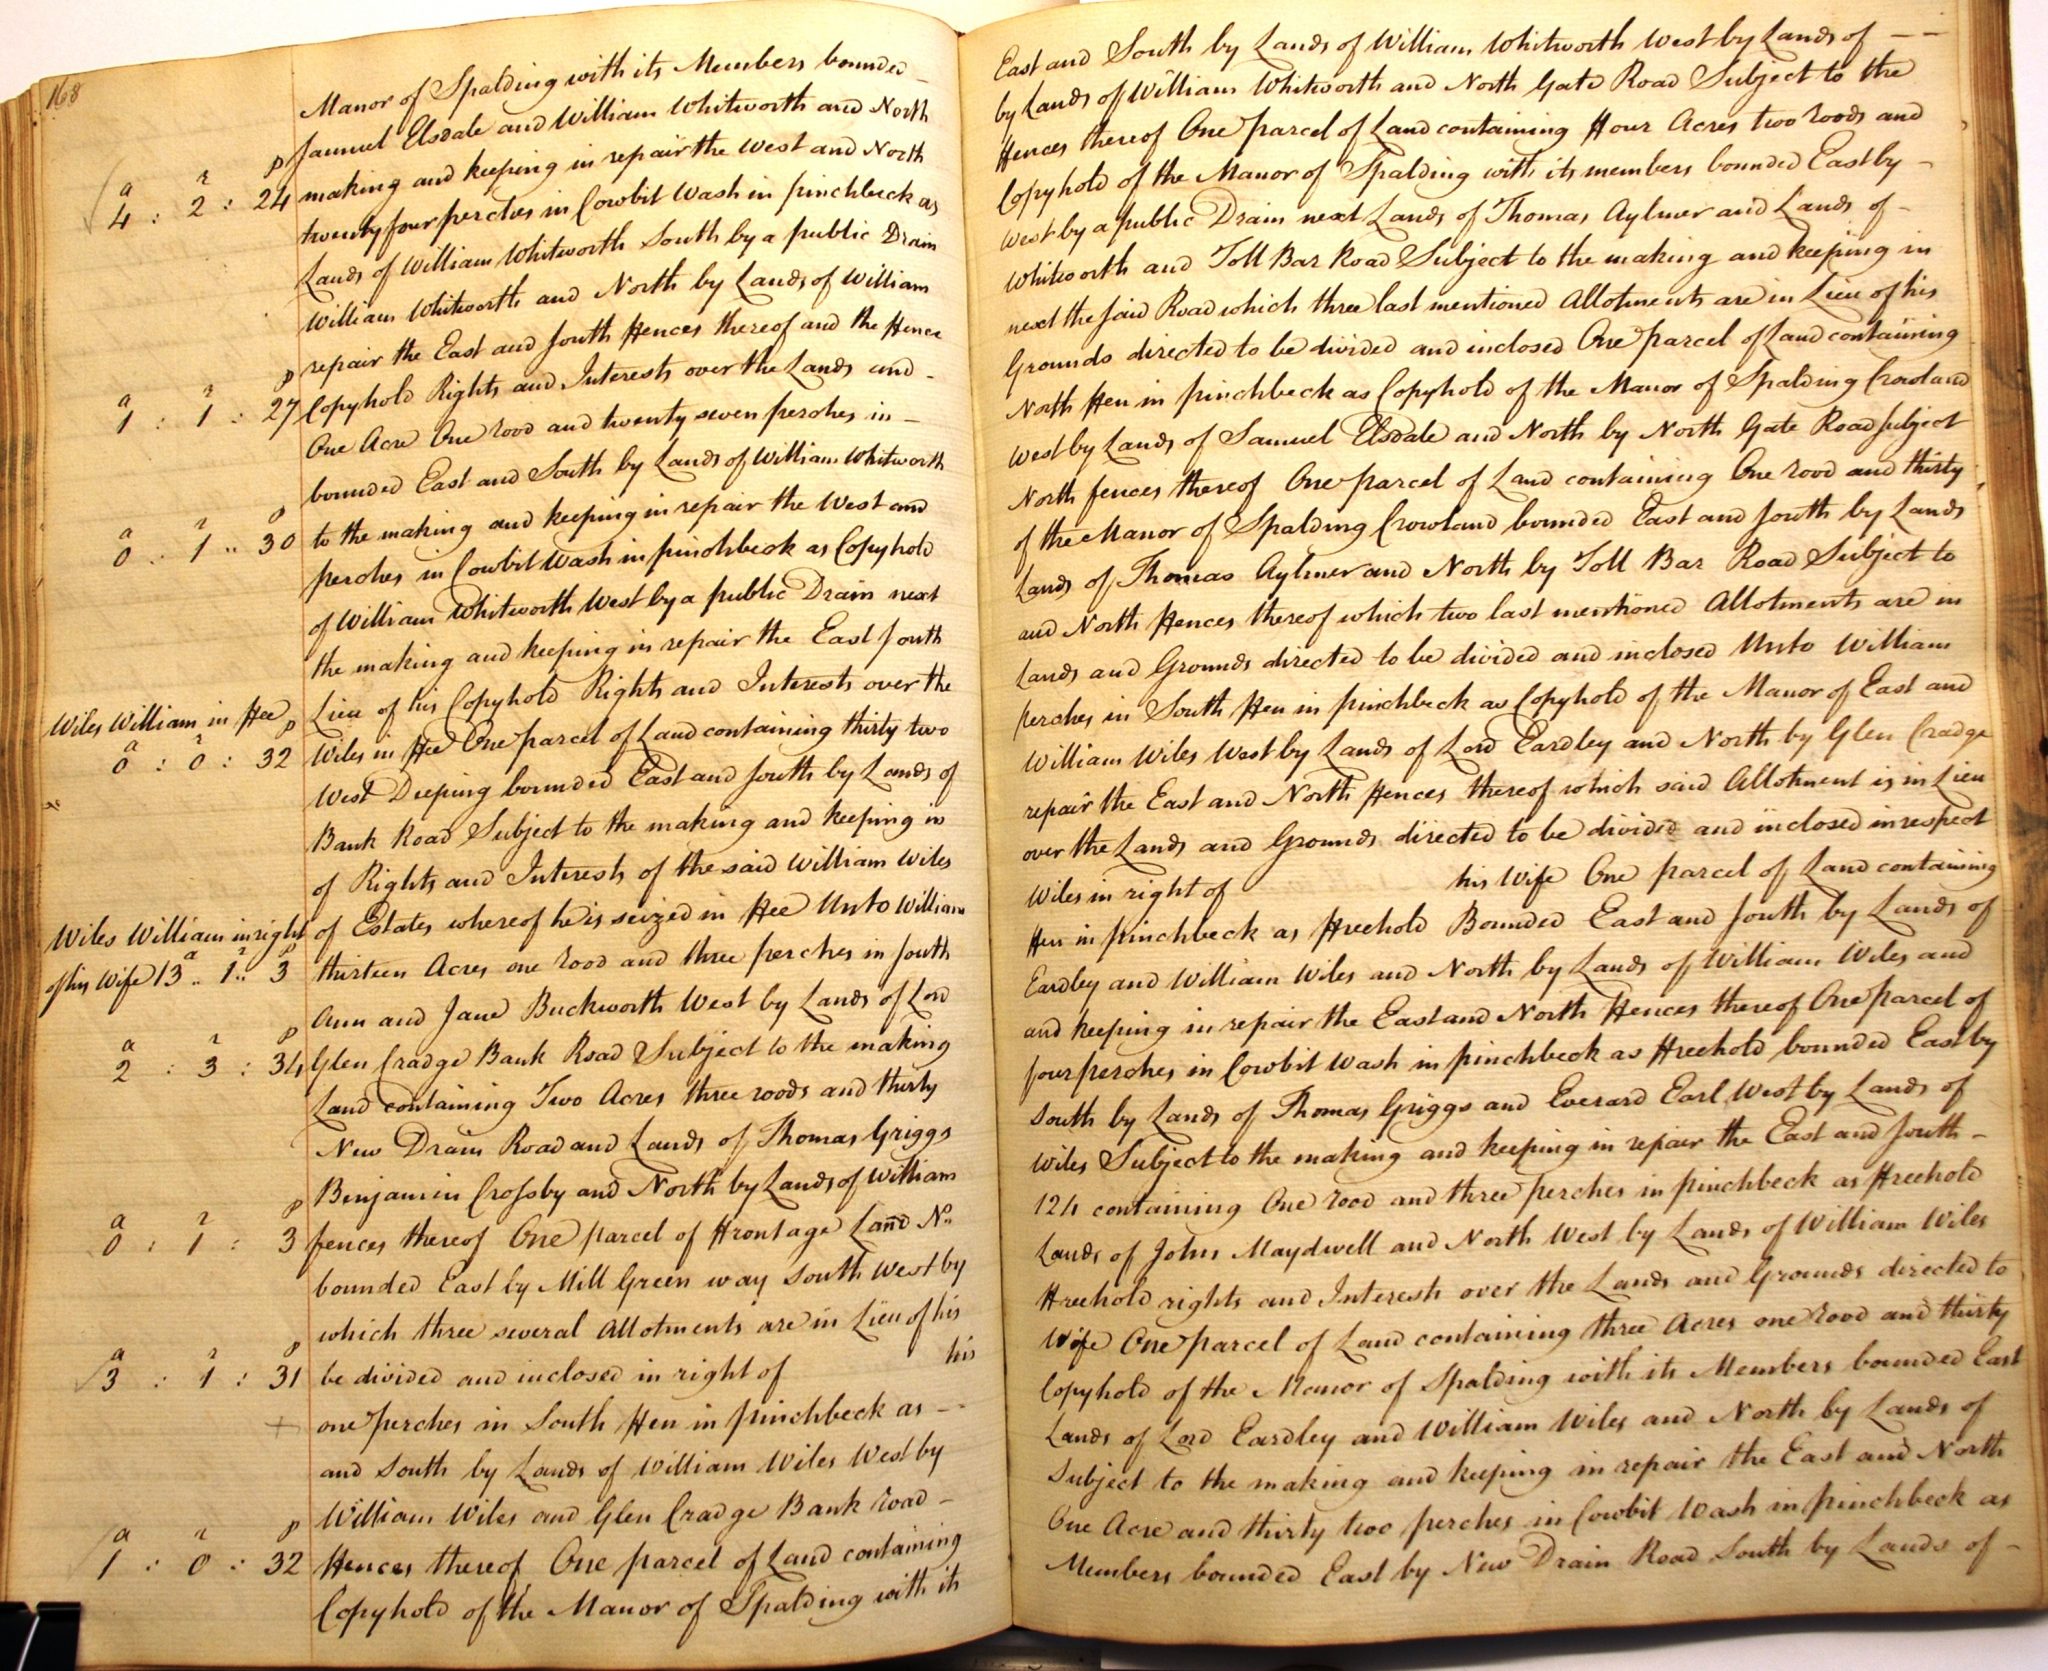 168
Manor of Spalding with its Members bounded – East and South by Lands of William Whitworth West by Lands of – –
Samuel Elsdale and William Whitworth and North by Lands of William Whitworth and North Gate Road Subject to the
a r p
4 : 2 : 24 making and keeping in repair the West and North Fences thereof One parcel of Land containing Four Acres two roods and
twenty four perches in Cowbit Wash in pinchbeck as Copyhold of the Manor of Spalding with its members bounded East by –
Lands of William Whitworth South by a public Drain West by a public Drain next Lands of Thomas Aylmer and Lands of –
William Whitworth and North by Lands of William Whitworth and Toll Bar Road Subject to the making and keeping in
repair the East and South Fences thereof and the Fence next the said Road which three last mentioned Allotments are in Lieu of his
a r p
1 : 1 : 27 Copyhold Rights and Interests over the Lands and – Grounds directed to be divided and inclosed One parcel of Land containing
One Acre One rood and twenty seven perches in – North Fen in pinchbeck as Copyhold of the Manor of Spalding Crowland
bounded East and South by Lands of William Whitworth West by Lands of Samuel Elsdale and North by North Gate Road Subject
a r p
0 : 1 : 30 to the making and keeping in repair the West and North fences thereof One parcel of Land containing One rood and thirty
perches in Cowbit Wash in pinchbeck as Copyhold of the Manor of Spalding Crowland bounded East and South by Lands
of William Whitworth West by a public Drain next Lands of Thomas Aylmer and North by Toll Bar Road Subject to
the making and keeping in repair the East South and North Fences thereof which two last mentioned Allotments are in
Wiles William in Fee Lieu of his Copyhold Rights and Interests over the Lands and Grounds directed to be divided and inclosed Unto William
a r p
0 : 0 : 32 Wiles in Fee One parcel of Land containing thirty two perches in South Fen in pinchbeck as Copyhold of the Manor of East and
West Deeping bounded East and South by Lands of William Wiles West by Lands of Lord Eardley and North by Glen Cradge
Bank Road Subject to the making and keeping in repair the East and North Fences thereof which said Allotment is in Lieu
of Rights and Interests of the said William Wiles over the Lands and Grounds directed to be divided and inclosed in respect
Wiles William in right of Estates whereof he is seized in Fee Unto William Wiles in right of his Wife One parcel of Land containing
a r p
of his Wife 13 .. 1 .. 3 thirteen Acres one rood and three perches in South Fen in pinchbeck as Freehold Bounded East and South by Lands of
Ann and Jane Buckworth West by Lands of Lord Eardley and William Wiles and North by Lands of William Wiles and
a r p
2 : 3 : 34 Glen Cradge Bank Road Subject to the making and keeping in repair the East and North Fences thereof One parcel of
Land containing Two Acres three roods and thirty four perches in Cowbit Wash in pinchbeck as Freehold bounded East by
New Drain Road and Lands of Thomas Griggs South by Lands of Thomas Griggs and Everard Earl West by Lands of
Benjamin Crossby and North by Lands of William Wiles Subject to the making and keeping in repair the East and South –
a r p
0 : 1 : 3 fences thereof One parcel of Frontage Land No. 124 containing One rood and three perches in pinchbeck as Freehold
bounded East by Mill Green way South West by Lands of John Maydwell and North West by Lands of William Wiles
which three several Allotments are in Lieu of his Freehold rights and Interests over the Lands and Grounds directed to
a r p
3 : 1 : 31 be divided and inclosed in right of his Wife One parcel of Land containing three Acres one rood and thirty
+ one perches in South Fen in pinchbeck as – Copyhold of the Manor of Spalding with its Members bounded East
and South by Lands of William Wiles West by Lands of Lord Eardley and William Wiles and North by Lands of
William Wiles and Glen Cradge Bank road – Subject to the making and keeping in repair the East and North
a r p
1 : 0 : 32 Fences thereof One parcel of Land containing One Acre and thirty two perches in Cowbit Wash in pinchbeck as
Copyhold of the Manor of Spalding with its Members bounded East by New Drain Road South by Lands of –